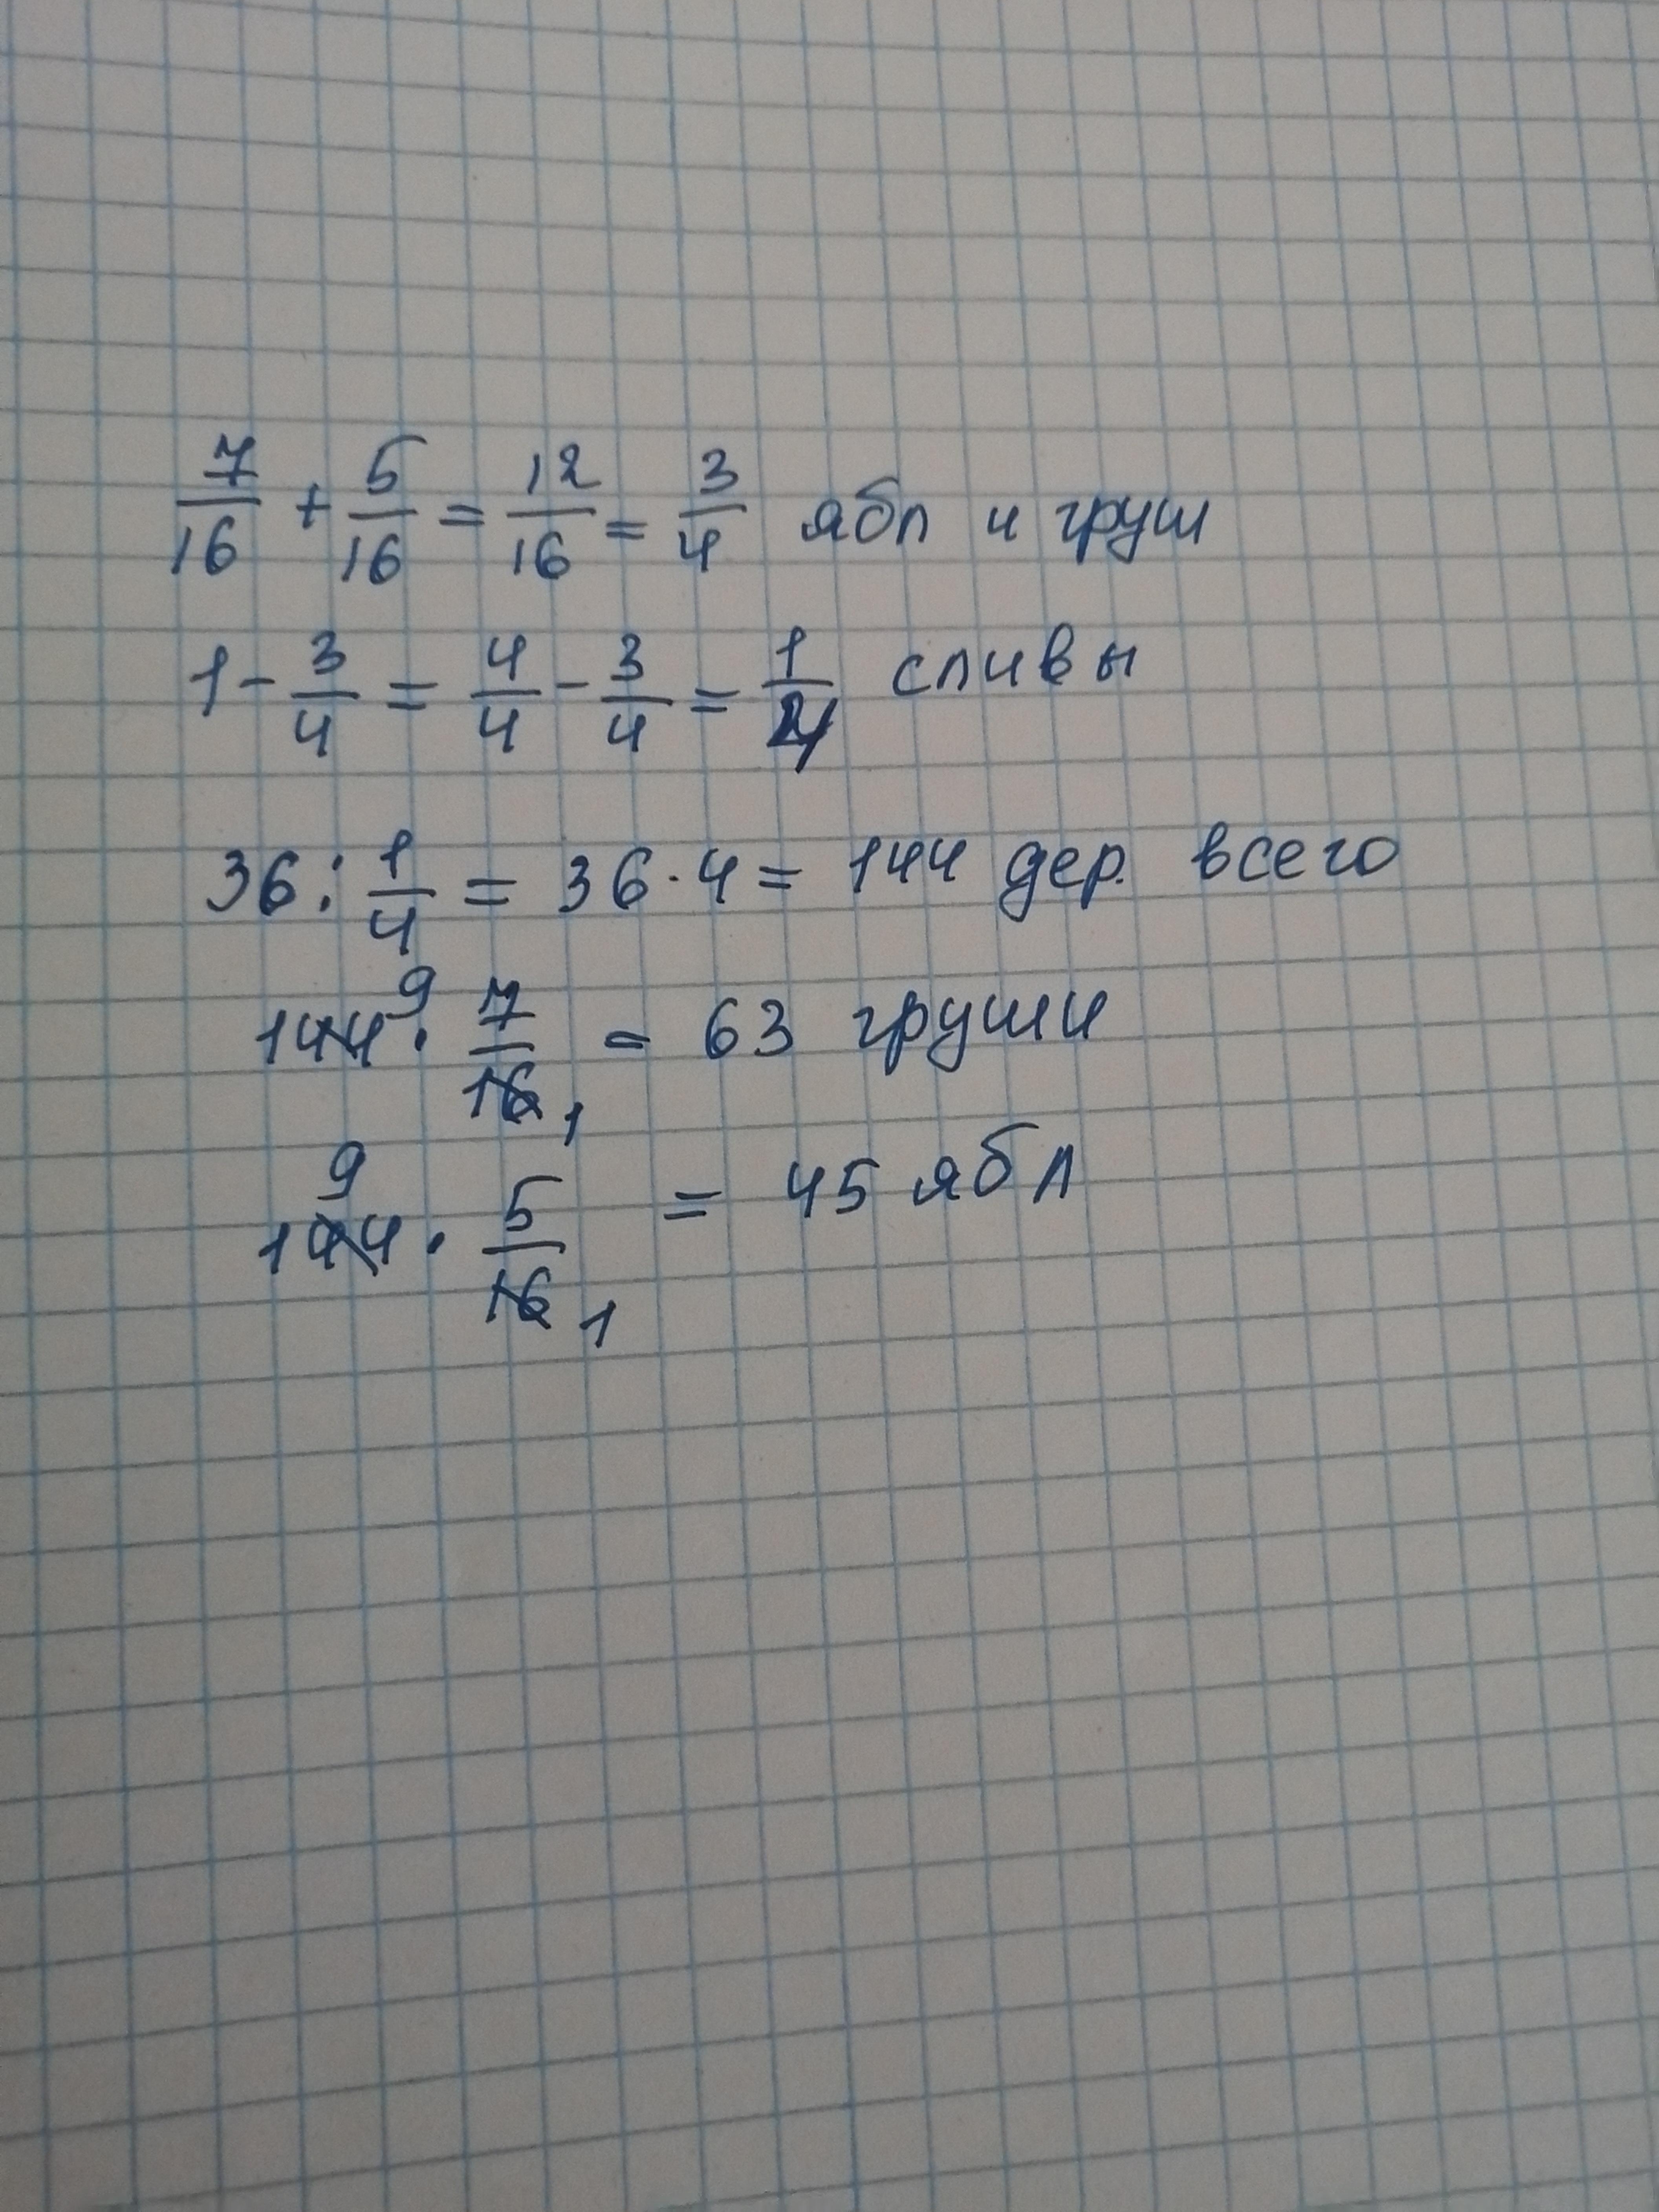 7/16 + 5/16 = 12/16 = 3/4 ябл и груш
1 - 3/4 = 4/4 - 3/4 = 1/4 сливы
36 : 1/4 = 36 · 4 = 144 дер. всего
144 9 · 7/16 1 = 63 груши
144 9 · 5/16 1 = 45 ябл